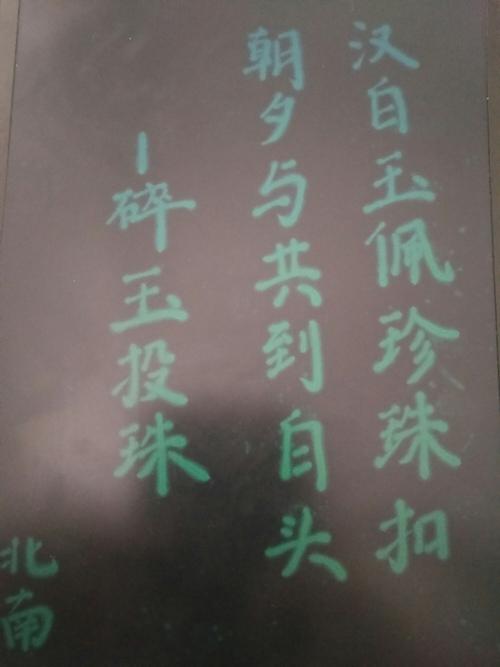 汉白玉佩珍珠扣
朝夕与共到自头
-碎玉投珠
北南